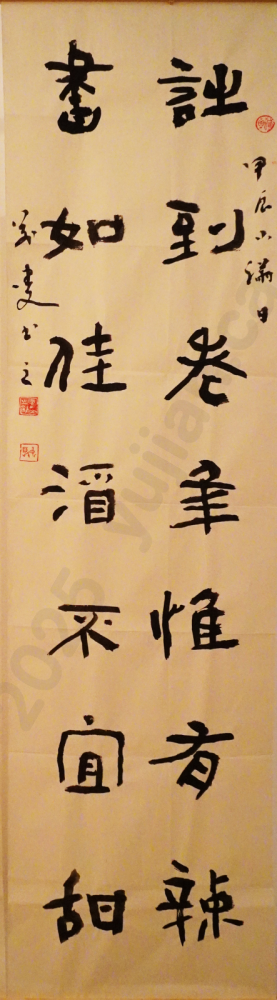 甲辰小日
詩到老年惟有辣
書如佳酒不宜甜
叟书之
2025 yujian.ca